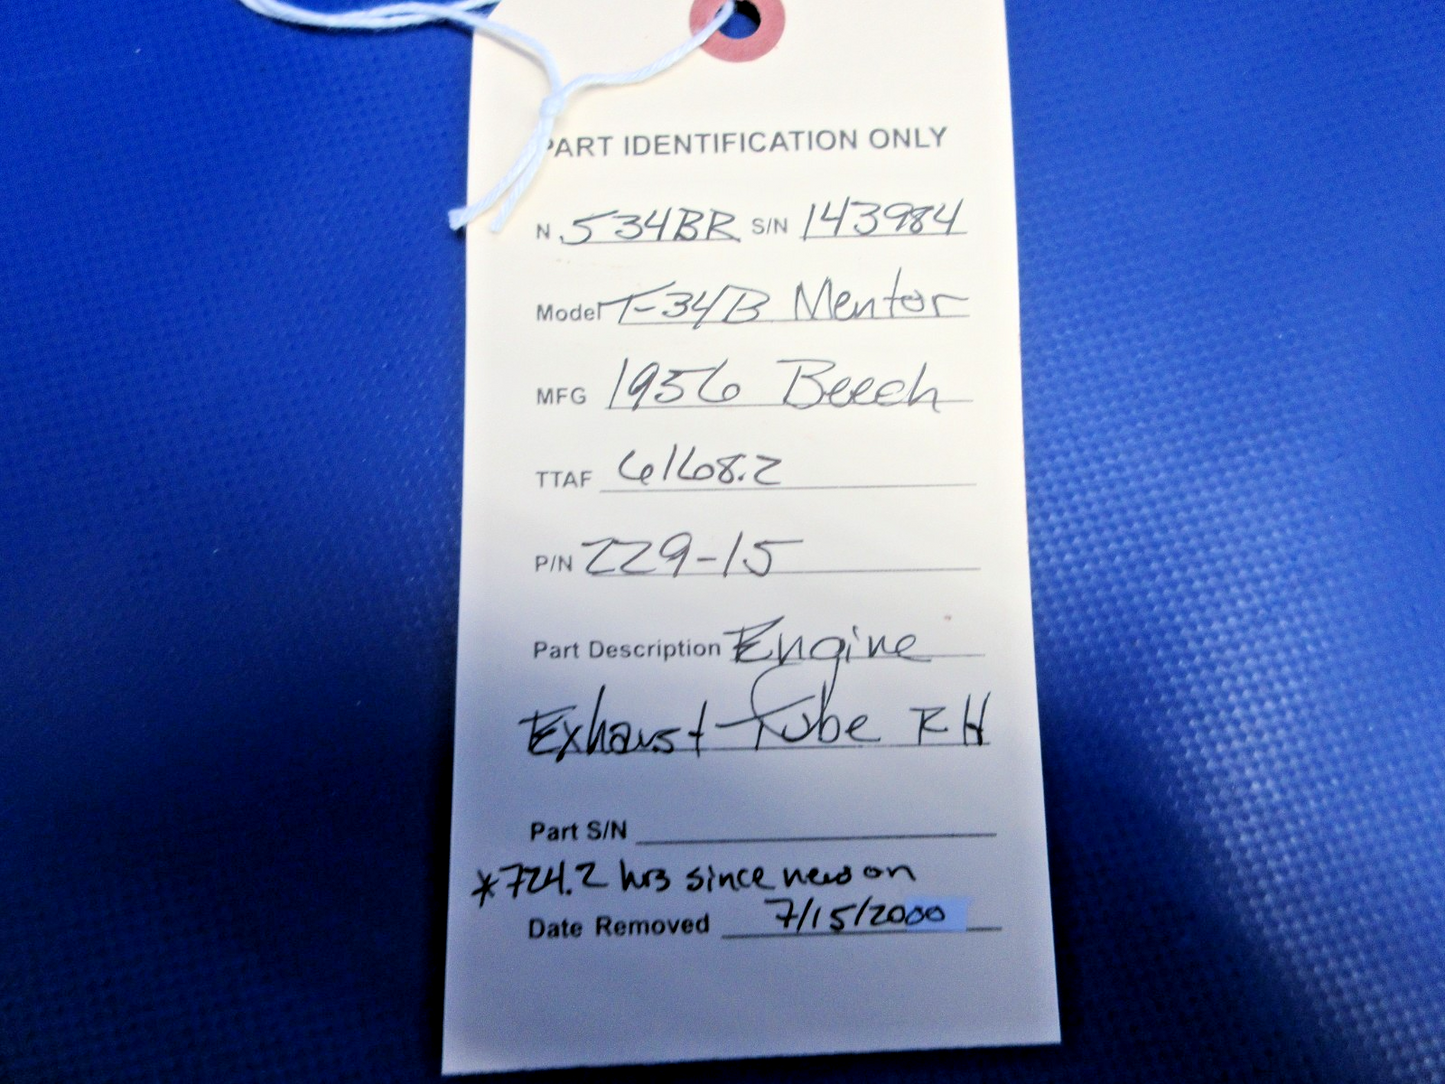 PART IDENTIFICATION ONLY
N 534BR S/N 143984
Model T-34B Mentor
MFG 1956 Beech
TTAF 6168.2
P/N 229-15
Part Description Engine
Exhaust Tube RH
Part S/N
*724.2 hrs since new on
Date Removed 7/15/2000